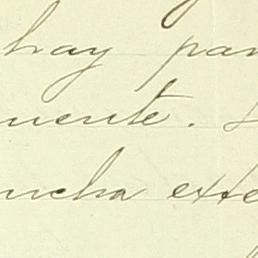 hay par
mente.
ucha exte